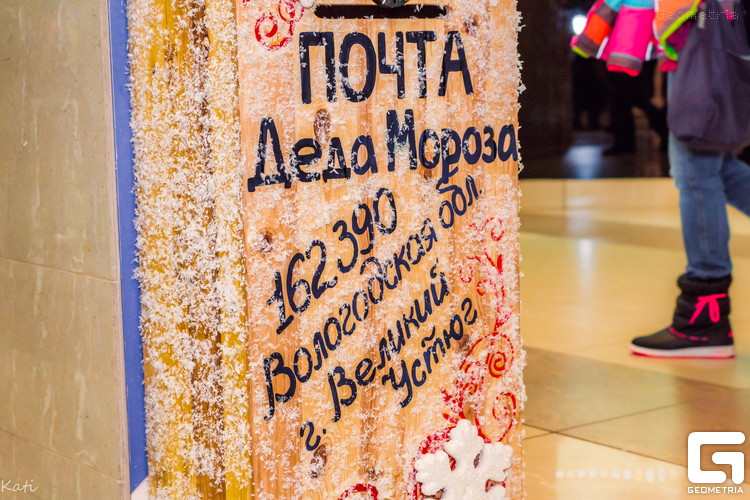 geometria
ПОЧТА
Деда Мороза
162390
Вологодская обл.
г. Великий
Устюг
Kati
GEOMETRIA